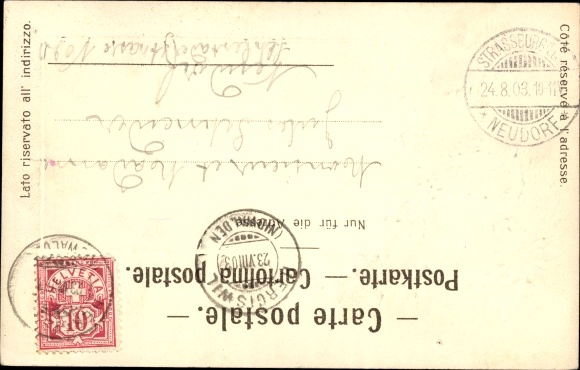 — Carte postale. —
Postkarte. — Cartolina postale.
Nur für die Adresse
Côté réservé à l'adresse.
Lato riservato all' indirizzo.
Monsieur et Madame
Jules Schneider
Neudorf
HELVETIA
10
(NIDWALDEN)
23.VIII.03
STRASSBURG
24.8.03.10-11
NEUDORF